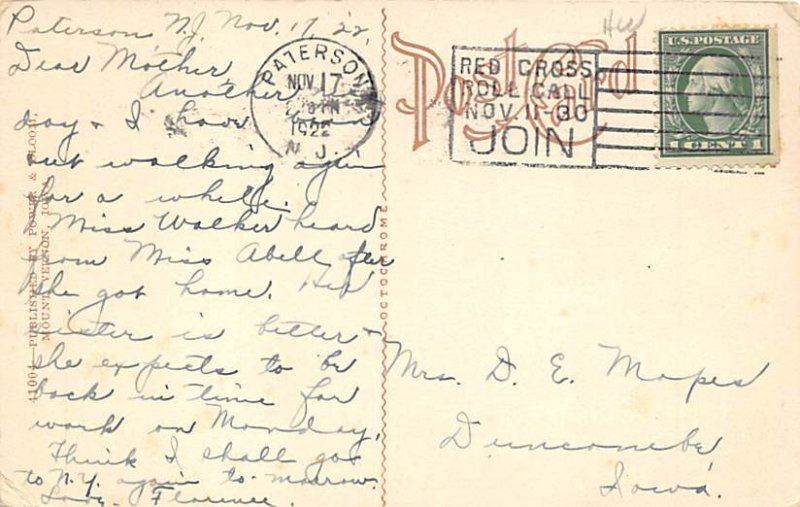 Paterson N.J. Nov. 17, 22,
Dear Mother,
Another
day & I have been
out walking again
for a while.
Miss Walker heard
from Miss Abell after
she got home. Her
sister is better &
she expects to be
back in time for
work on Monday.
Think I shall go
to N.Y. again to-morrow.
Love - Florence.
41004—PUBLISHED BY POWER & BLOOM,
MOUNT VERNON, IOWA
OCTOCHROME
PATERSON
NOV 17
1922
N. J.
Post Card
RED CROSS
ROLL CALL
NOV 11-30
JOIN
U.S. POSTAGE
1 CENT 1
Mrs. D. E. Mapes
Duncombe,
Iowa.